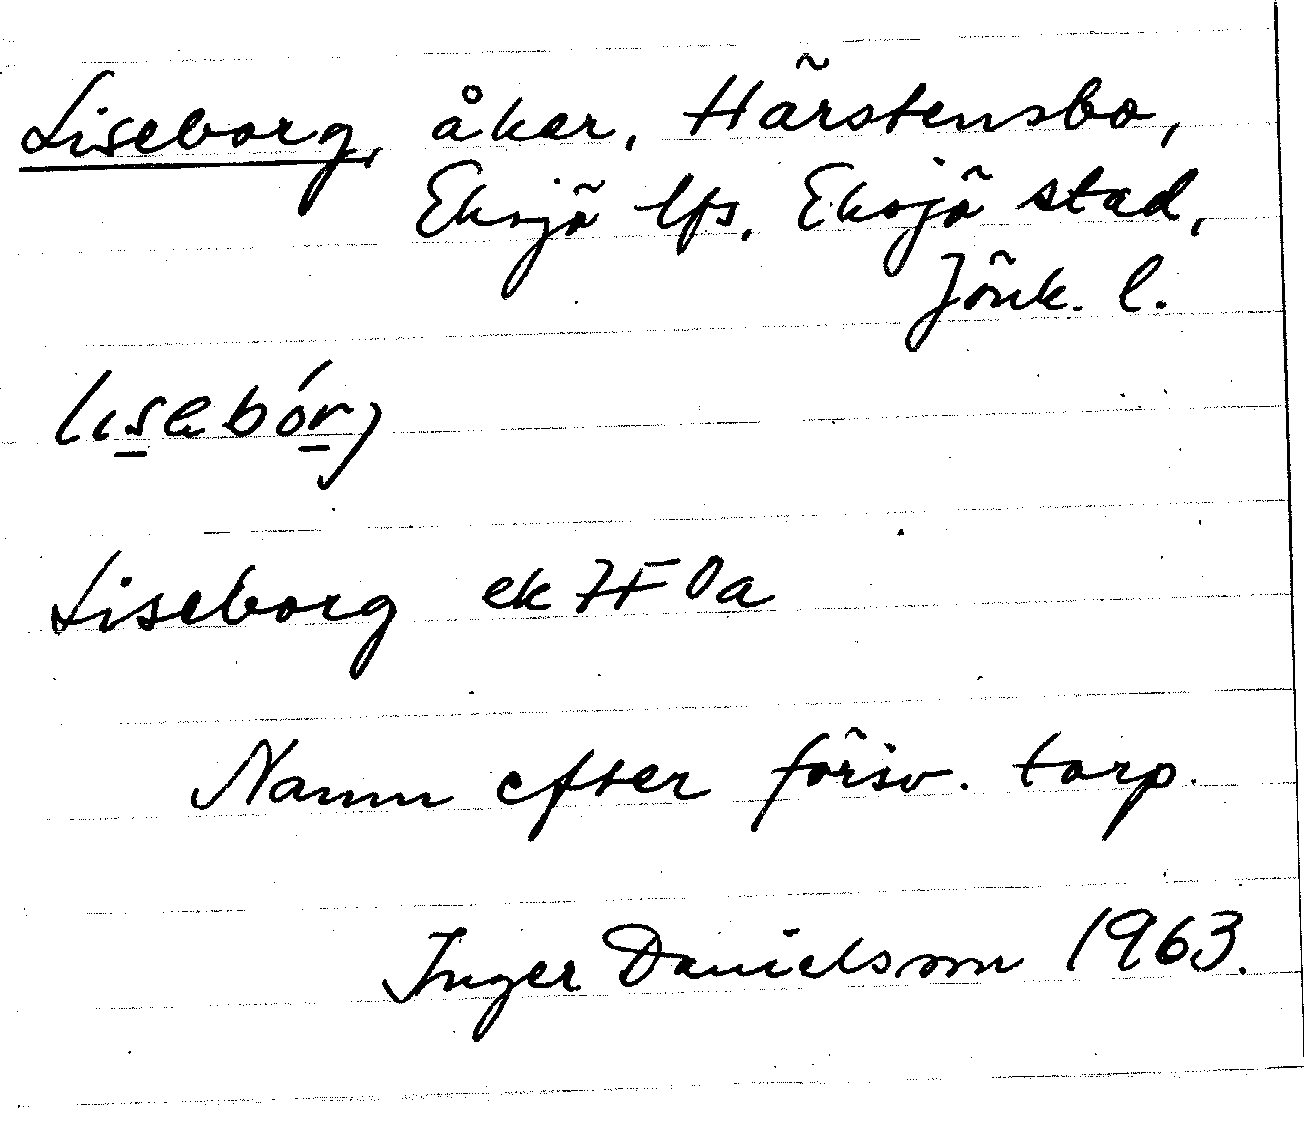 Liseborg, åker, Härstensbo,
Eksjö lfs, Eksjö stad,
Jönk. l.
lisebórj
Liseborg ek 7F 0a
Namn efter försv. torp.
Inger Danielsson 1963.